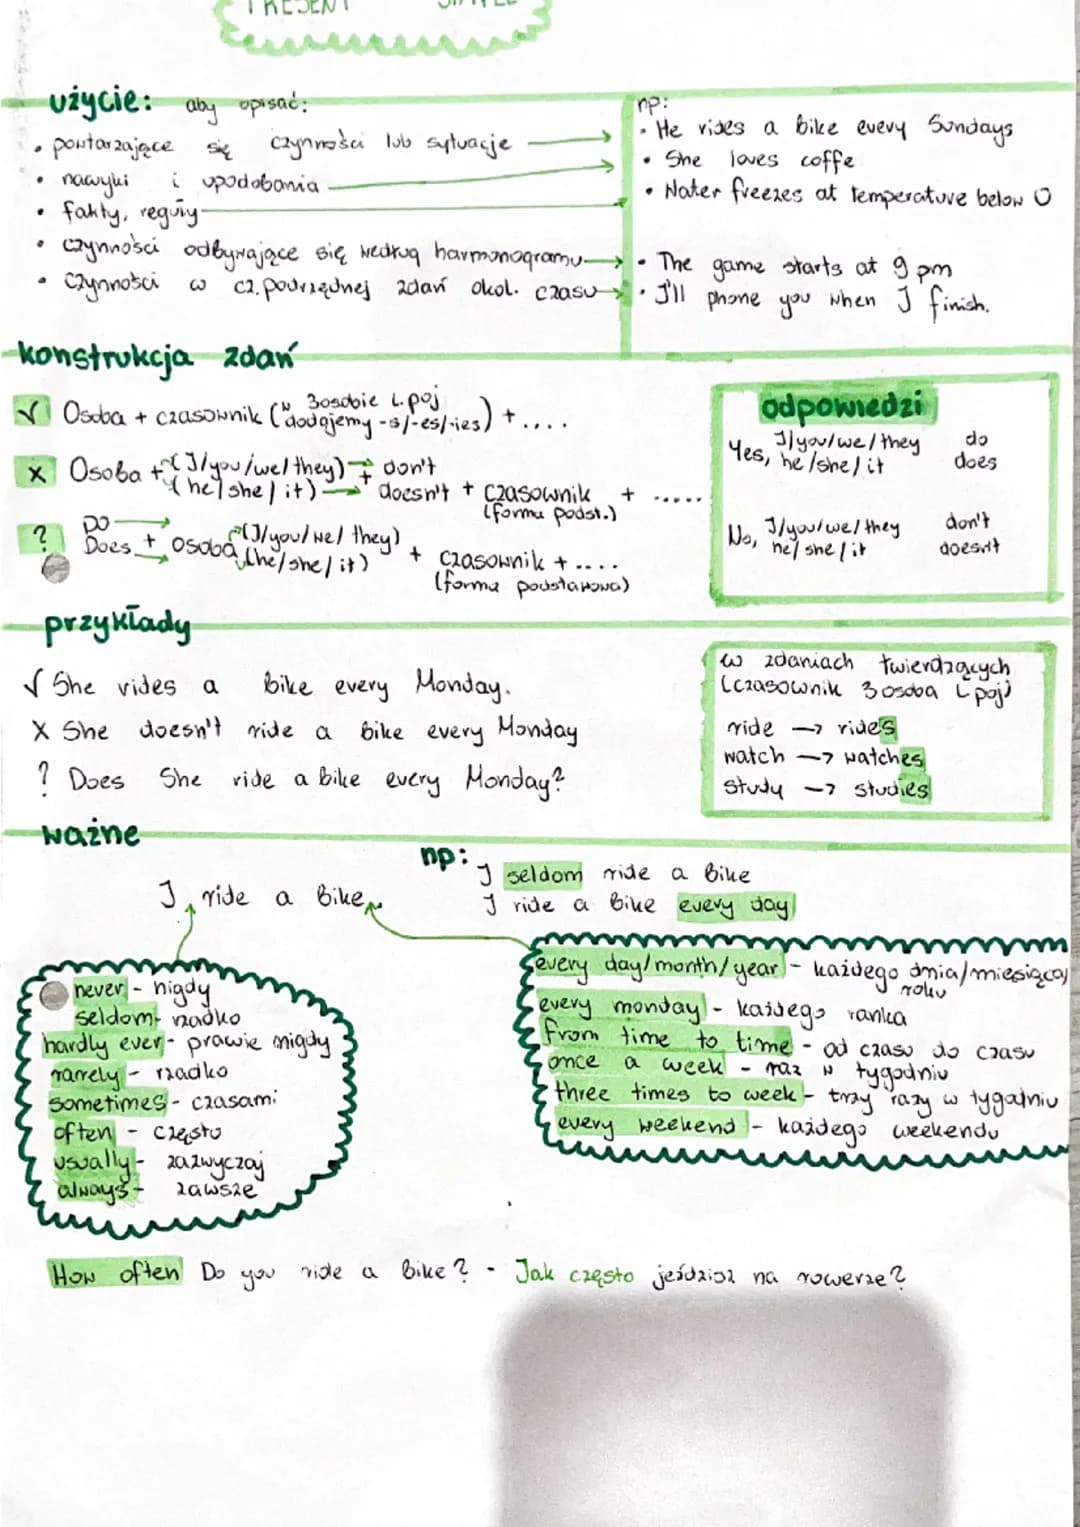 PRESENT SIMPLE
użycie: aby opisać:
• powtarzające się czynności lub sytuacje
• nawyki i upodobania
• fakty, reguły
• czynności odbywające się według harmonogramu
• czynności w cz. podrzędnej zdań okol. czasu
np:
• He rides a bike every Sundays
• She loves coffe
• Water freezes at temperature below 0
• The game starts at 9 pm
• I'll phone you when I finish.
konstrukcja zdań
√ Osoba + czasownik (w 3osobie l.poj dodajemy -s/-es/-ies) + ....
x Osoba + (I/you/we/they) → don't
(he/she/it) → doesn't + czasownik + .....
(forma podst.)
? Do
Does + osoba (I/you/we/they)
(he/she/it) + czasownik + ....
(forma podstawowa)
odpowiedzi
Yes, I/you/we/they do
he/she/it does
No, I/you/we/they don't
he/she/it doesn't
przykłady
√ She rides a bike every Monday.
X She doesn't ride a bike every Monday
? Does She ride a bike every Monday?
w zdaniach twierdzących
(czasownik 3 osoba l poj)
ride → rides
watch → watches
study → studies
ważne
I ride a bike
np:
I seldom ride a bike
I ride a bike every day
never - nigdy
seldom - rzadko
hardly ever - prawie nigdy
rarely - rzadko
sometimes - czasami
often - często
usually - zazwyczaj
always - zawsze
every day/month/year - każdego dnia/miesiąca/
roku
every monday - każdego ranka
from time to time - od czasu do czasu
once a week - raz w tygodniu
three times to week - trzy razy w tygodniu
every weekend - każdego weekendu
How often Do you ride a bike? - Jak często jeździsz na rowerze?